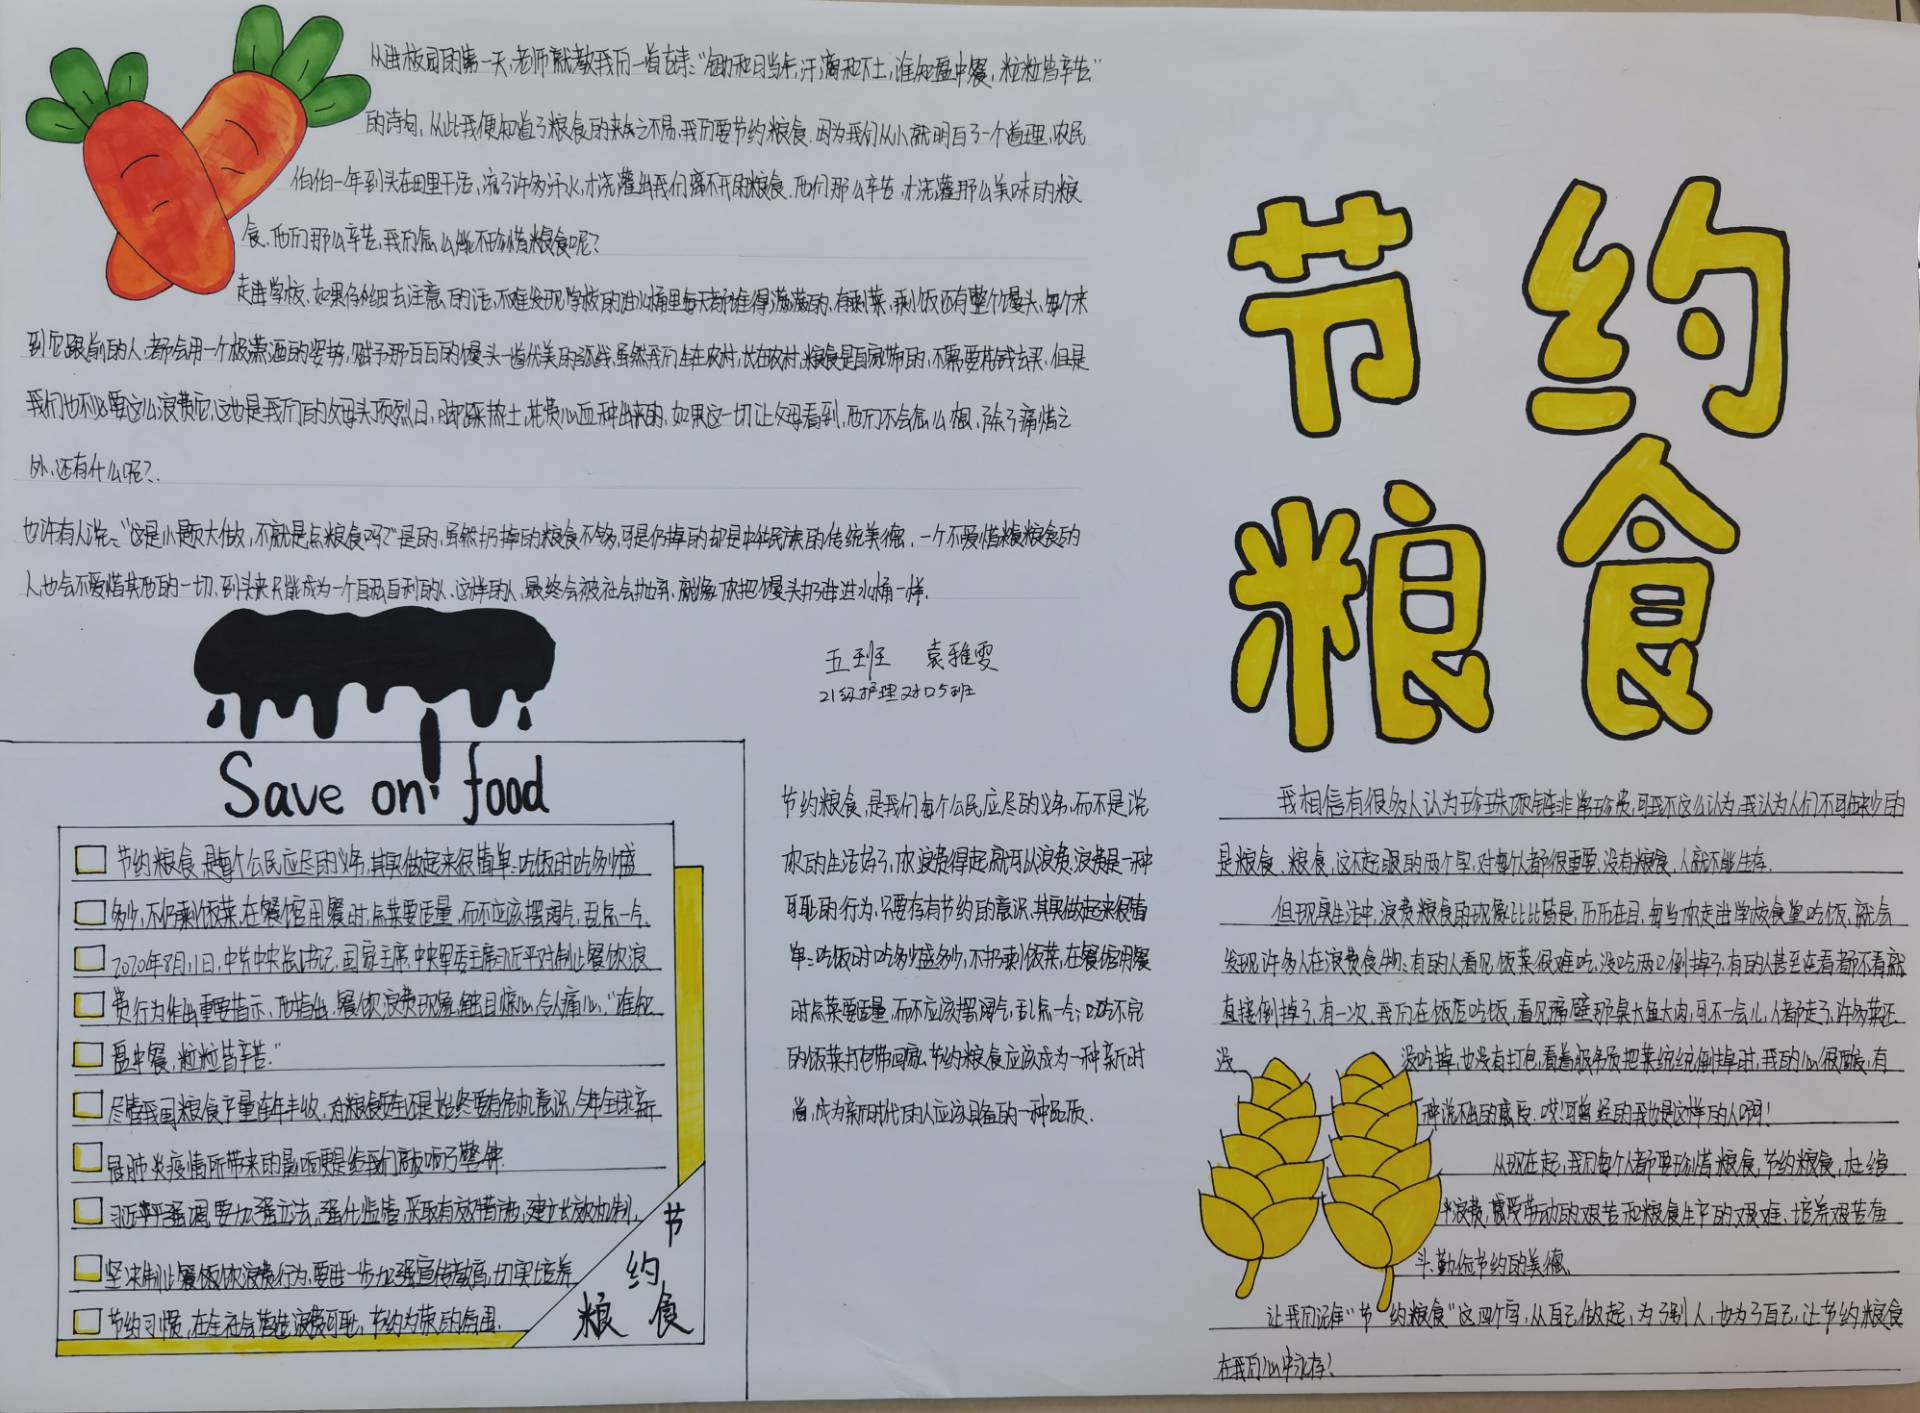 从进校园的第一天,老师就教我们一首古诗:"锄禾日当午,汗滴禾下土,谁知盘中餐,粒粒皆辛苦"
的诗句,从此我便知道了粮食的来之不易,我们要节约粮食.因为我们从小就明白了一个道理,农民
伯伯一年到头在田里干活,流了许多汗水,才浇灌出我们离不开的粮食.他们那么辛苦,才浇灌那么美味的粮
食.他们那么辛苦,我们怎么能不珍惜粮食呢?
走进学校,如果你仔细去注意的话,不难发现学校的泔水桶里每天都堆得满满的,有剩菜,剩饭还有整个馒头,每个来
到它跟前的人,都会用一个极潇洒的姿势,赋予那百百的馒头一道优美的弧线,虽然我们生在农村,长在农村,粮食是自家带的,不需要花钱去买.但是
我们也不必要这么浪费它,这也是我们的父母头顶烈日,脚踩热土,花费心血种出来的,如果这一切让父母看到,他们不会怎么想,除了痛惜之
外,还有什么呢?
也许有人说:"这是小题大做,不就是点粮食吗?"是的,虽然扔掉的粮食不多,可是仍掉的却是中华民族的传统美德,一个不爱惜粮粮食的
人,也会不爱惜其他的一切,到头来只能成为一个自私自利的人,这样的人,最终会被社会抛弃,就像你把馒头扔进泔水桶一样.
五班 袁雅雯
21级护理对口5班
节约
粮食
Save on food
节约粮食,是每个公民应尽的义务,其实做起来很简单:吃饭时吃多少盛
多少,不仍剩饭菜,在餐馆用餐时,点菜要适量,而不应该摆阔气,乱点一气.
2020年8月11日,中共中央总书记,国家主席,中央军委主席习近平对制止餐饮浪
费行为作出重要指示,他指出,餐饮浪费现象,触目惊心,令人痛心."谁知
盘中餐,粒粒皆辛苦."
尽管我国粮食产量连年丰收,对粮食安全还是始终要有危机意识,今年全球新
冠肺炎疫情所带来的影响更是给我们敲响了警钟.
习近平强调,要加强立法,强化监管,采取有效措施,建立长效机制,
坚决制止餐饭饮浪费行为,要进一步加强宣传教育,切实培养
节约习惯,在全社会营造浪费可耻,节约为荣的氛围.
节
约
粮食
节约粮食,是我们每个公民应尽的义务,而不是说
你的生活好了,你浪费得起就可以浪费,浪费是一种
可耻的行为,只要存有节约的意识,其实做起来很简
单:吃饭时吃多少盛多少,不扔剩饭菜,在餐馆用餐
时点菜要适量,而不应该摆阔气,乱点一气;吃不完
的饭菜打包带回家.节约粮食应该成为一种新时
尚,成为新时代的人应该具备的一种品质.
我相信有很多人认为珍珠项链非常珍贵,可我不这么认为,我认为人们不可缺少的
是粮食、粮食,这不起眼的两个字,对每个人都很重要,没有粮食,人就不能生存.
但现实生活中,浪费粮食的现象比比皆是,历历在目,每当你走进学校食堂吃饭,就会
发现许多人在浪费食物:有的人看见饭菜很难吃,没吃两口倒掉了,有的人甚至连看都不看就
直接倒掉了,有一次,我们在饭店吃饭,看见隔壁那桌大鱼大肉,可不一会儿,人都走了,许多菜还
没 没吃掉,也没有打包,看着服务员把菜统统倒掉时,我的心很酸,有
种说不出的感受.哎!可曾经的我也是这样的人啊!
从现在起,我们每个人都要珍惜粮食,节约粮食,杜绝
浪费,感受劳动的艰苦和粮食生产的艰难,培养艰苦奋
斗,勤俭节约的美德.
让我们记住"节约粮食"这四个字,从自己做起,为了别人,也为了自己,让节约粮食
在我们心中永存!